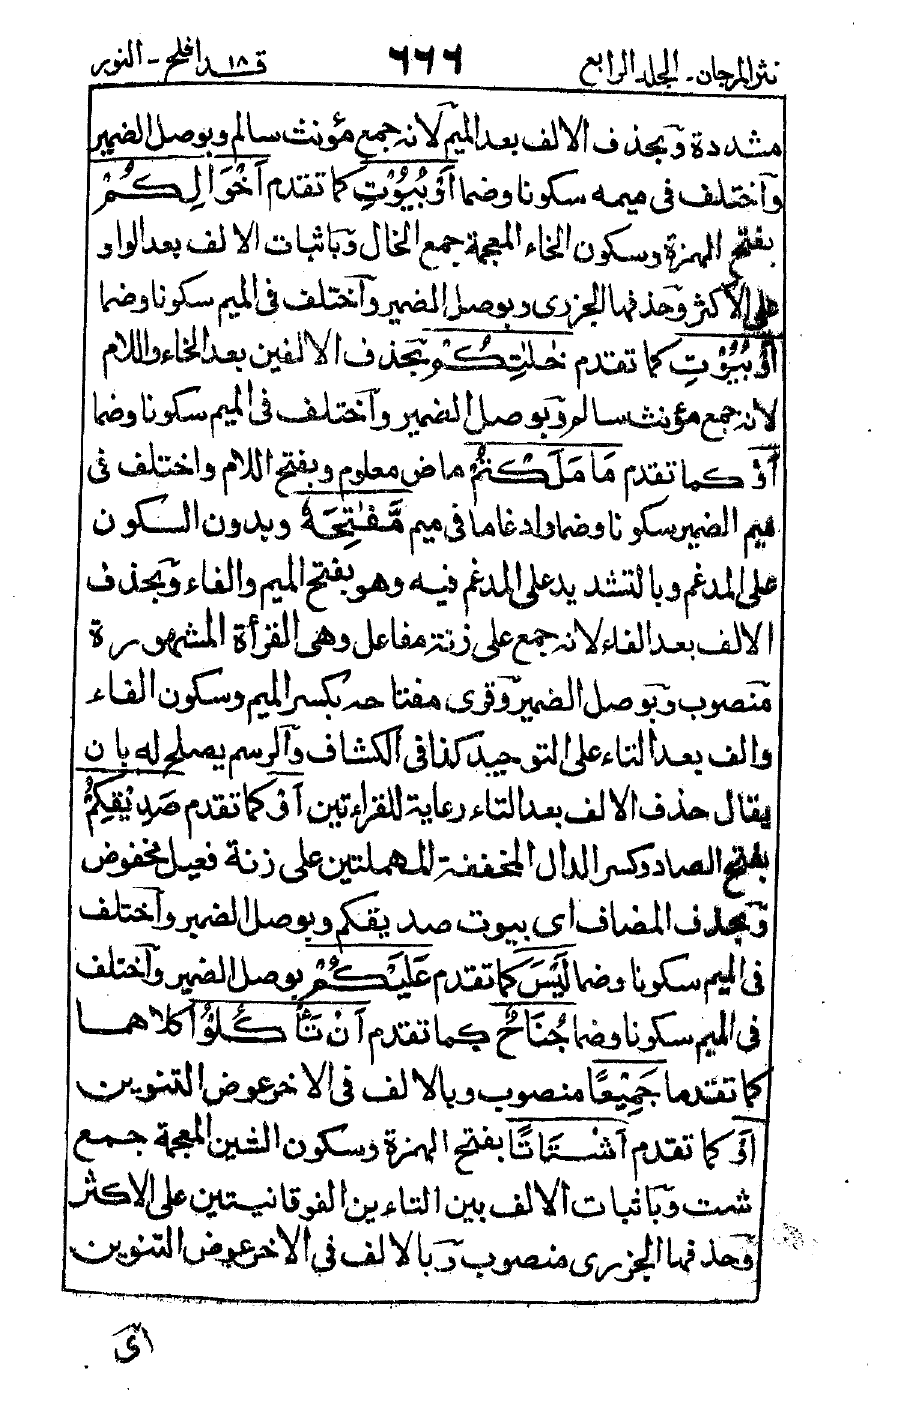 نثر المرجان - الجلد الرابع ٦٦٦ قد افلح ١٨ - النور
مشددة وبحذف الالف بعد الميم لانه جمع مؤنث سالم وبوصل الضمير
واختلف فى ميمه سكونا وضما أَوْ بُيُوْتِ كما تقدم أَخْوَالِكُمْ
بفتح الهمزة وسكون الخاء المعجمة جمع الخال وباثبات الالف بعد الواو
على الأكثر وحذفها الجزرى وبوصل الضمير واختلف فى الميم سكونا وضما
أَوْ بُيُوْتِ كما تقدم خٰلٰتِكُمْ بحذف الالفين بعد الخاء واللام
لانه جمع مؤنث سالم وبوصل الضمير واختلف فى الميم سكونا وضما
أَوْ كما تقدم مَا مَلَكْتُمْ ماض معلوم وبفتح اللام واختلف فى
ميم الضمير سكونا وضما وادغاما فى ميم مَّفٰتِحَهٗ وبدون السكون
على المدغم وبالتشديد على المدغم فيه وهو بفتح الميم والفاء وبحذف
الالف بعد الفاء لانه جمع على زنة مفاعل وهى القرأة المشهورة
منصوب وبوصل الضمير وقرى مفتاحه بكسر الميم وسكون الفاء
والف بعد التاء على التوحيد كذا فى الكشاف والرسم يصلح له بان
يقال حذف الالف بعد التاء رعاية للقراءتين أَوْ كما تقدم صَدِيْقِكُمْ
بفتح الصاد وكسر الدال المخففة المهملتين على زنة فعيل مخفوض
وبحذف المضاف اى بيوت صديقكم وبوصل الضمير واختلف
فى الميم سكونا وضما لَيْسَ كما تقدم عَلَيْكُمْ بوصل الضمير واختلف
فى الميم سكونا وضما جُنَاحٌ كما تقدم أَنْ تَأْكُلُوْا كلاهما
كما تقدما جَمِيْعًا منصوب وبالالف فى الاخر عوض التنوين
أَوْ كما تقدم أَشْتَاتًا بفتح الهمزة وسكون الشين المعجمة جمع
شت وباثبات الالف بين التاءين الفوقانيتين على الاكثر
وحذفها الجزرى منصوب وبالالف فى الاخر عوض التنوين
اى